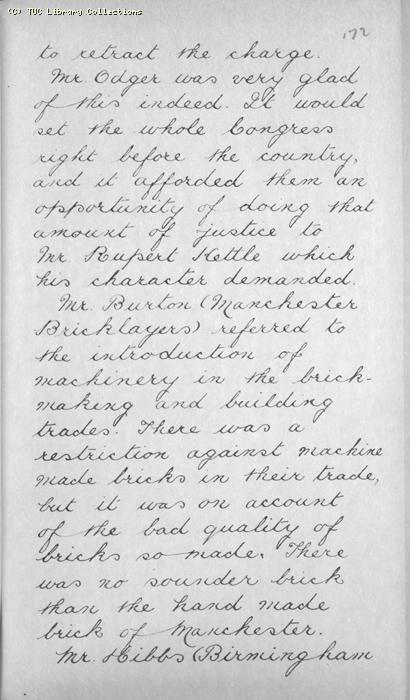 (C) TUC Library Collections
172
to retract the charge.
Mr. Odger was very glad
of this indeed. It would
set the whole Congress
right before the country,
and it afforded them an
opportunity of doing that
amount of justice to
Mr. Rupert Kettle which
his character demanded.
Mr. Burton (Manchester
Bricklayers) referred to
the introduction of
machinery in the brick-
making and building
trades. There was a
restriction against machine
made bricks in their trade,
but it was on account
of the bad quality of
bricks so made. There
was no sounder brick
than the hand made
brick of Manchester.
Mr. Hibbs (Birmingham